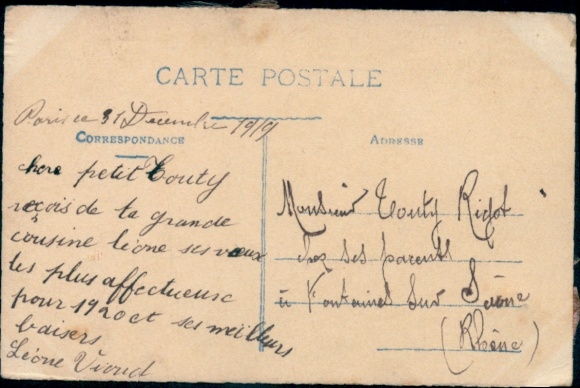 CARTE POSTALE
Paris ce 31 Decembre 1919
CORRESPONDANCE
chere petit Touty
reçois de ta grande
cousine léone ses vœux
les plus affectueuse
pour 1920 et ses meilleurs
baisers
Léone Vioud
ADRESSE
Monsieur Touty Rigot
chez ses parents
à Fontaines sur Saône
(Rhône)